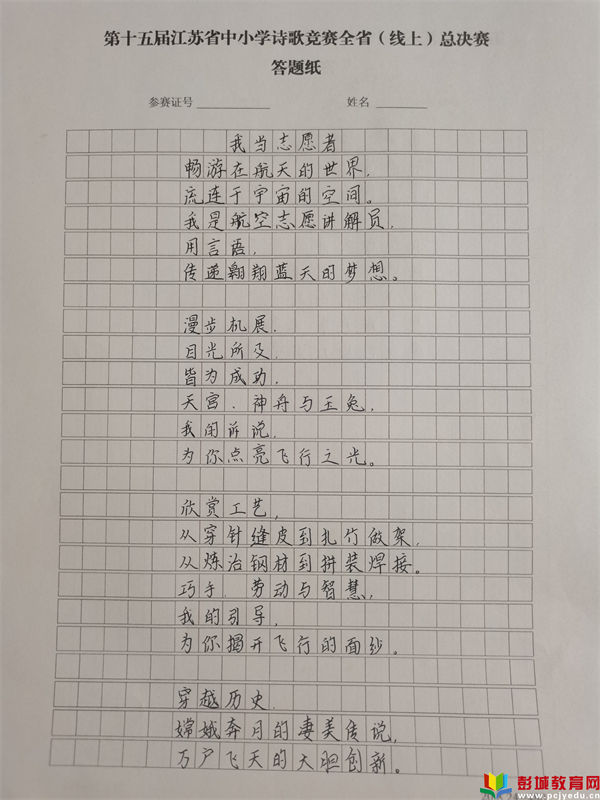 第十五届江苏省中小学诗歌竞赛全省（线上）总决赛
答题纸
参赛证号 姓名
我当志愿者
畅游在航天的世界，
流连于宇宙的空间。
我是航空志愿讲解员，
用言语，
传递翱翔蓝天的梦想。
漫步机展，
目光所及，
皆为成功，
天宫、神舟与玉兔，
我的诉说，
为你点亮飞行之光。
欣赏工艺，
从穿针缝皮到扎竹做架，
从炼冶钢材到拼装焊接。
巧手、劳动与智慧，
我的引导，
为你揭开飞行的面纱。
穿越历史，
嫦娥奔月的凄美传说，
万户飞天的大胆创新。
彭城教育网
www.pcjyedu.cn